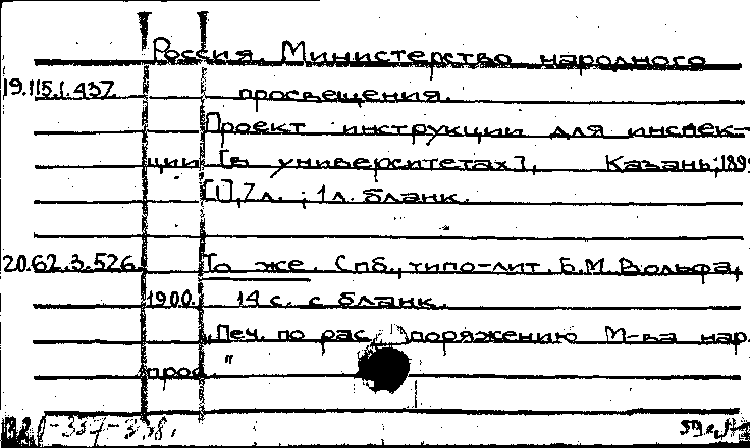 Россия. Министерство народного
19.115.1.437. просвещения.
Проект инструкции для инспек-
ции [в университетах], Казань, 189
[1], 7 л. ; 1 л. бланк.
20.62.3.526. То же. Спб., типо-лит. Б.М. Вольфа,
1900. 14 с. с бланк.
„Печ. по рас поряжению М-ва нар.
прос. "
337-338.